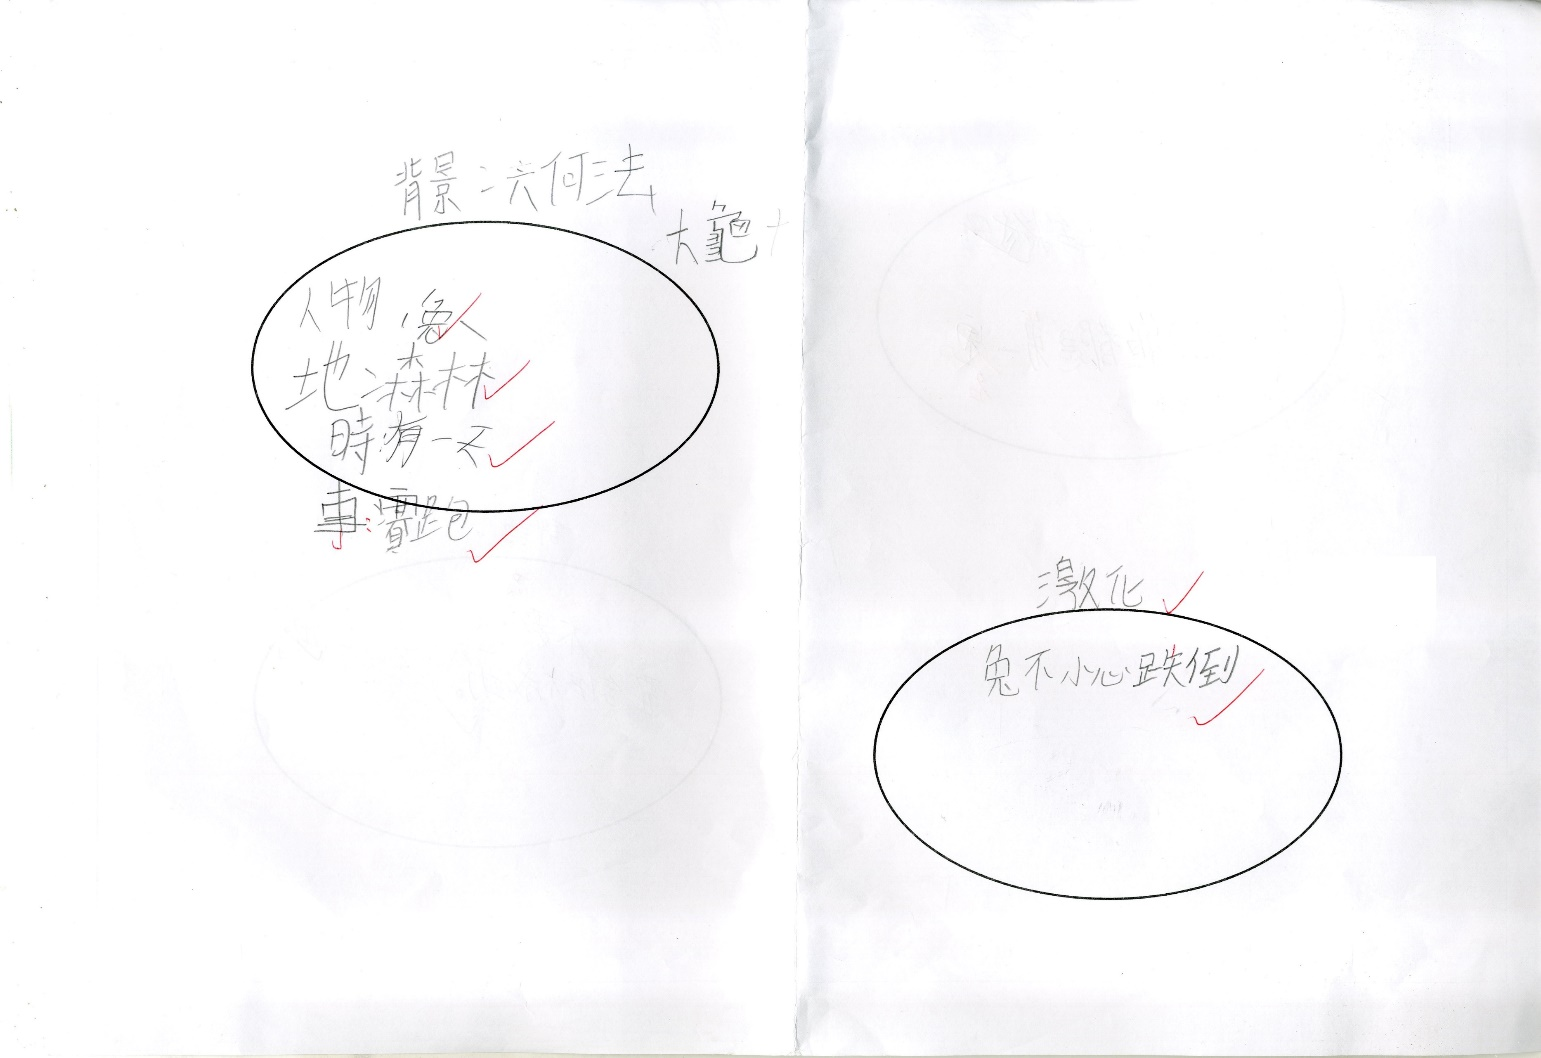 背景：六何法
大龜
人物：兔
地：森林
時：有一天
事：賽跑
激化
兔不小心跌倒